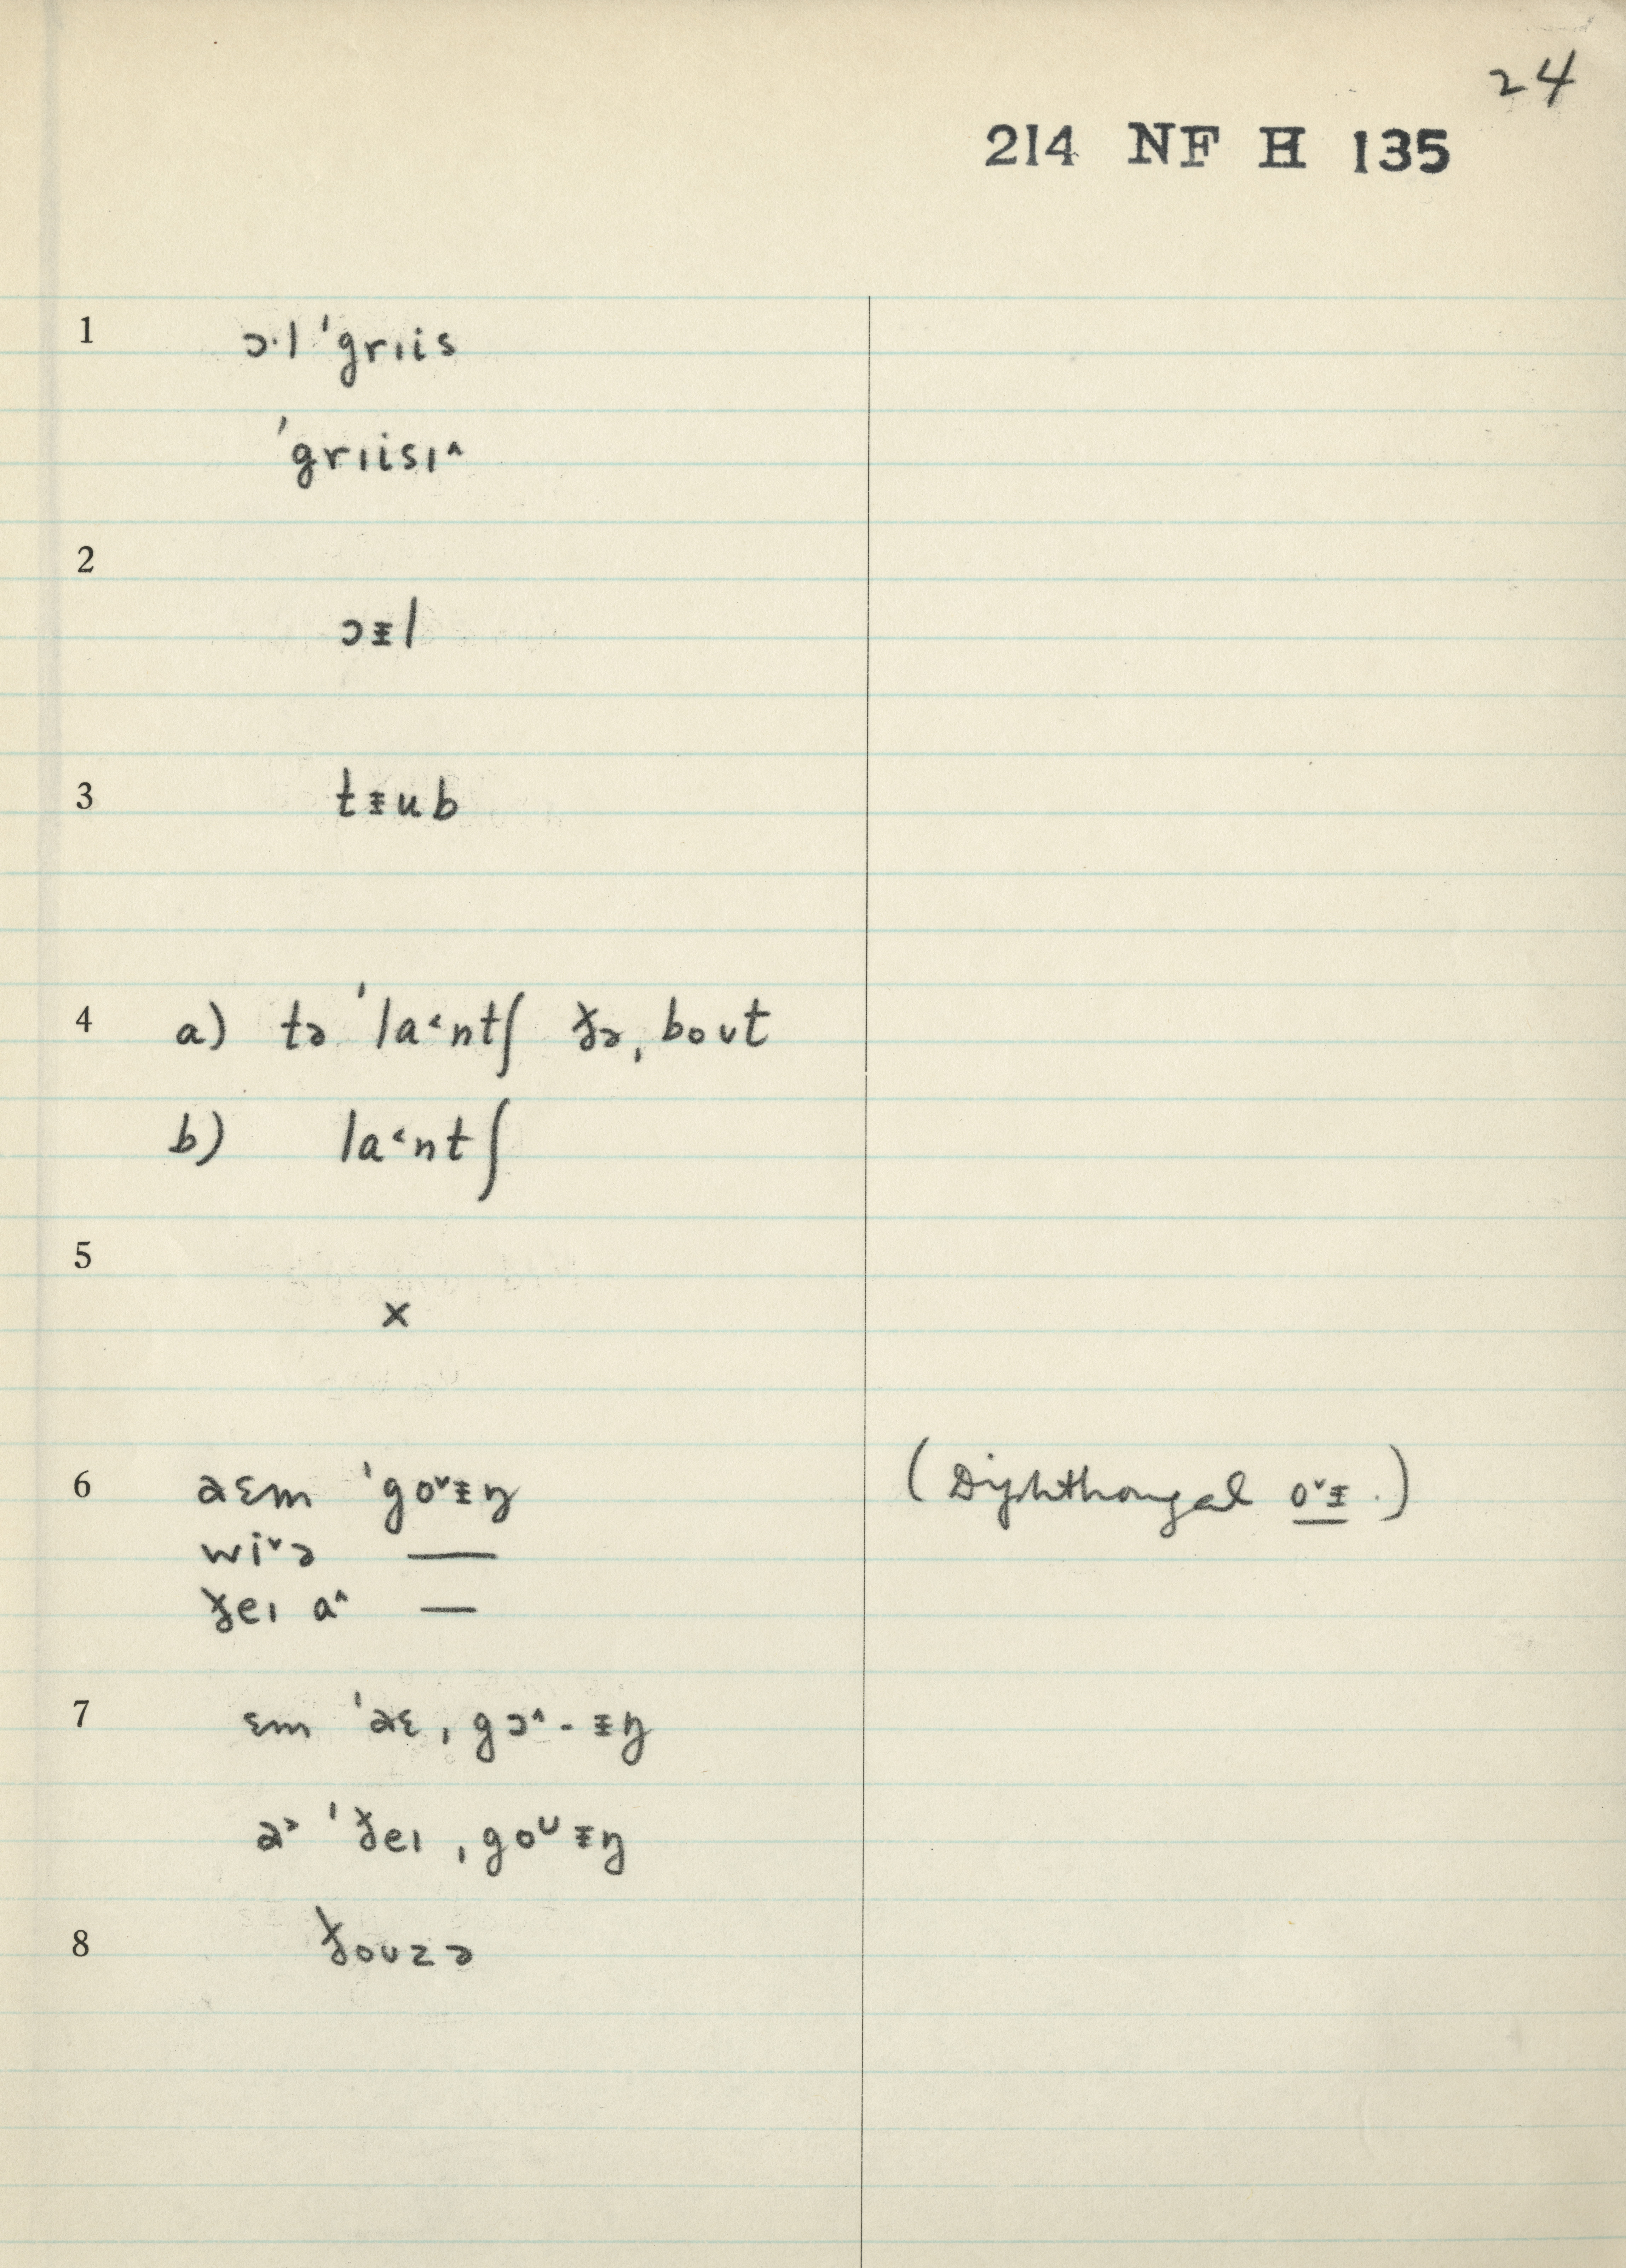 24
214 NF H 135
1 ɔ·l 'grɪis
'grɪisɪ^
2
ɔᵻl
3 tᵻub
4 a) tə 'la˂ntʃ ðə ˌboʊt
b) la˂ntʃ
5
x
6 aɛm 'go˅ᵻŋ (Diphthongal o˅ᵻ.)
wi˅ə —
ðeɪ a^ —
7 ɛm 'aɛ ˌgɔ^-ᵻŋ
a˃ 'ðeɪ ˌgoᶷᵻŋ
8 ðoʊzə